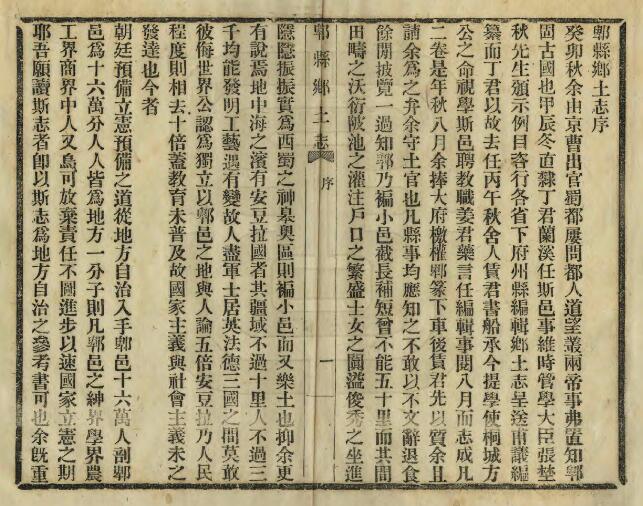 郫縣鄉土志序
癸卯秋余由京曹出官蜀都屢問都人道望叢兩帝事弗置知郫
固古國也甲辰冬直隸丁君蘭溪任斯邑事維時管學大臣張埜
秋先生頒示例目咨行各省下府州縣編輯鄉土志呈送甫叢編
纂而丁君以故去任丙午秋舍人賃君書船承今提學使桐城方
公之命視學斯邑聘教職姜君藥言任編輯事閱八月而志成凡
二卷是年秋八月余捧大府檄權郫篆下車後賃君先以質余且
請余爲之弁余守土官也凡縣事均應知之不敢以不文辭退食
餘閒披覽一過知郫乃褊小邑截長補短曾不能五十里而其間
田疇之沃衍陂池之灌注戶口之繁盛士女之闐溢俊秀之坐進
郫縣鄉土志
序
一
隱隱振振實爲西蜀之神皋奧區則褊小邑而又樂土也抑余更
有說焉地中海之濱有安豆拉國者其疆域不過十里人不過三
千均能發明工藝遇有變故人盡軍士居英法德三國之間莫敢
彼侮世界公認爲獨立以郫邑之地與人論五倍安豆拉乃人民
程度則相去十倍蓋教育未普及故國家主義與社會主義未之
發達也今者
朝廷預備立憲預備之道從地方自治入手郫邑十六萬人剖郫
邑爲十六萬分人人皆爲地方一分子則凡郫邑之紳界學界農
工界商界中人又烏可放棄責任不圖進步以速國家立憲之期
耶吾願讀斯志者卽以斯志爲地方自治之參考書可也余旣重